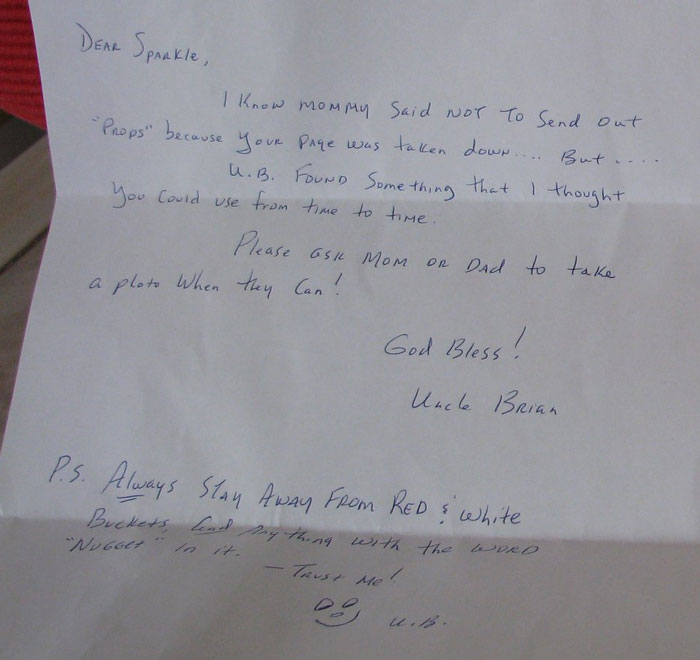 Dear Sparkle,
I know mommy said not to send out
"Props" because your page was taken down.... But....
U.B. found something that I thought
you could use from time to time.
Please ask Mom or Dad to take
a photo when they can!
God Bless!
Uncle Brian
P.S. Always stay away from Red & White
Buckets, and anything with the word
"Nugget" in it.
- Trust me!
U.B.